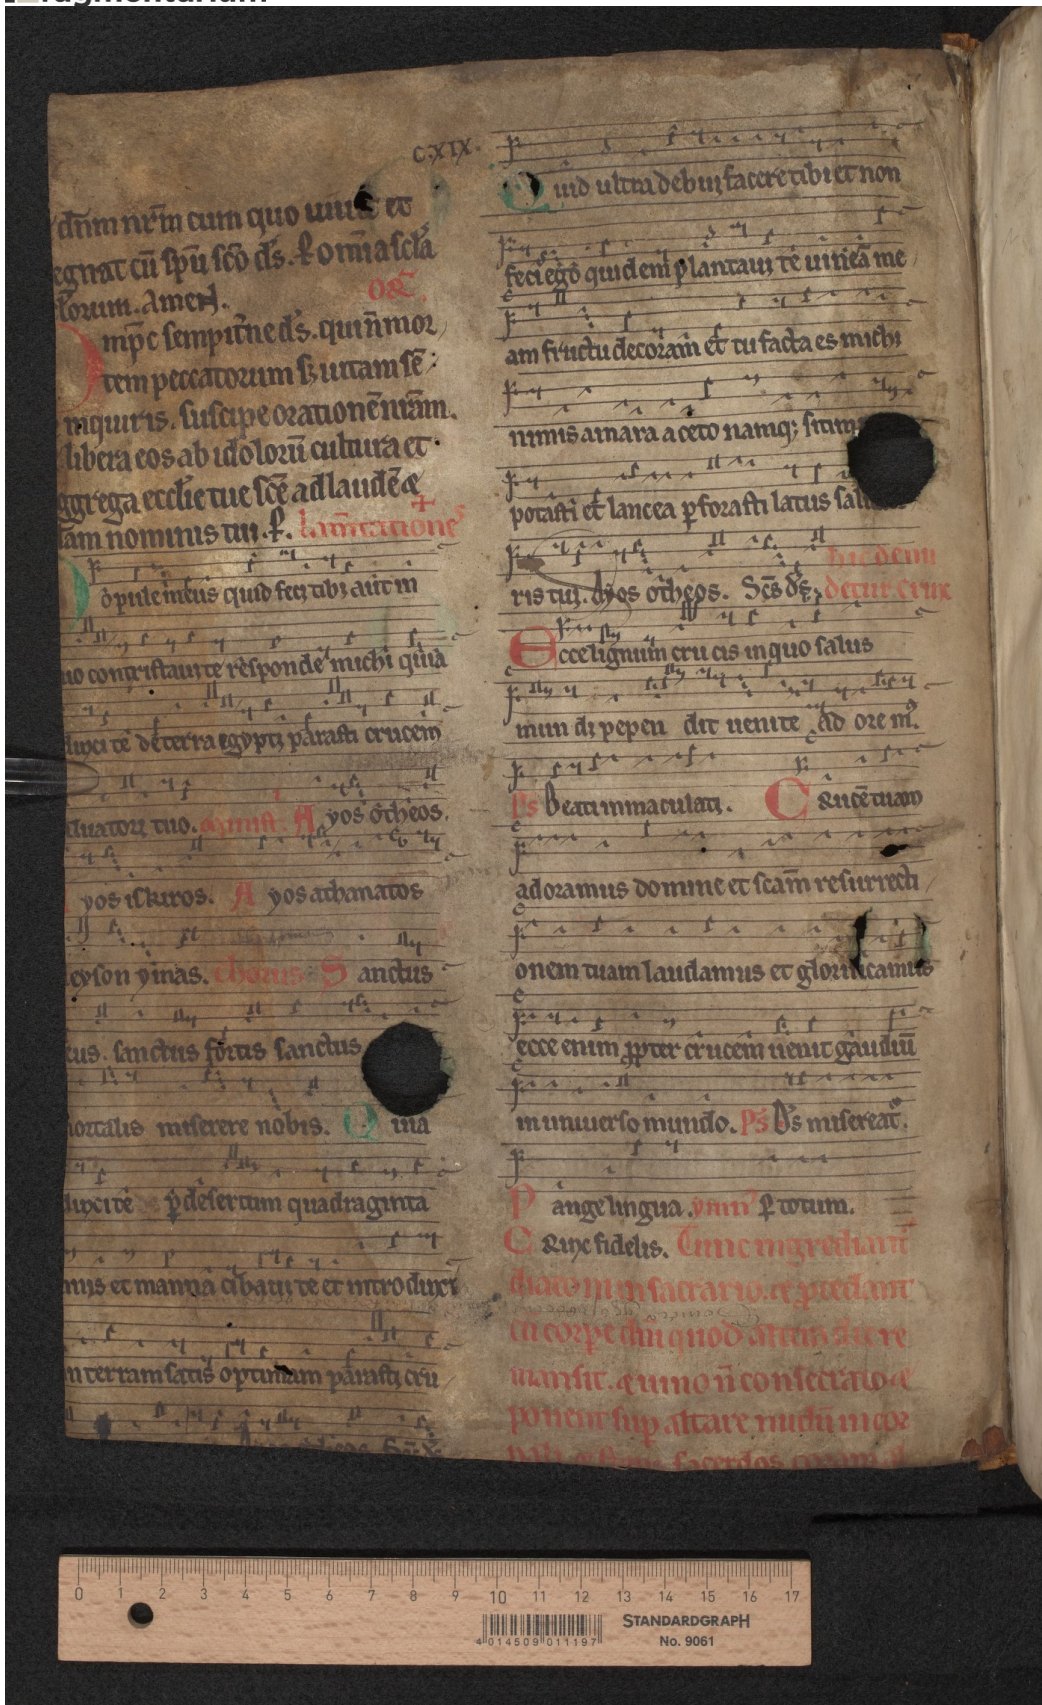 C.XIX.
dn̄m nr̄m cum quo uiuit et
egnat cū sp̄u scō d̄s. P̲ om̄ia sc̄la
lorum. Amen.
mp̄c sempit̄ne d̄s. qui n̄ mor
tem peccatorum sꝫ uitam sē
inquiris. suscipe orationē nr̄am.
libera eos ab idolorū cultura et
ggrega eccl̄ie tue sc̄e ad laudē &
iam nominis tui. P̲. lam̄tatione
opule meus quid feci tibi aut in
uo contristaui te responde michi quia
duxi te de terra egypti parasti crucem
aluatori tuo. A yos otheos.
yos iskiros. A yos athanatos
eyson ymas. chorus. S anctus
eus. sanctus fortis sanctus
mortalis miserere nobis. Q uia
duxi te p̲ desertum quadraginta
nnis et manna cibaui te et introduxi
n terram satis optimam parasti cru
Q uid ultra debui facere tibi et non
feci ego quidem plantaui te uineā me
am fructu decoram et tu facta es michi
nimis amara aceto namqꝫ sitim
potasti et lancea p̲forasti latus sal
hic denu
ris tui. Ayos otheos. Sc̄s d̄s. detur crux
Ecce lignum cru cis in quo salus
mun di pepen dit uenite ad ore mꝰ.
Ps Beati inmaculati. C rucē tuam
adoramus domine et scam̄ resurrecti
onem tuam laudamus et glorificamus
ecce enim p̲pter crucem uenit gaudiū
in uniuerso mundo. Ps D̄s misereat᷑.
P ange lingua. ymn̄ p̲ totum.
C rux fidelis. Tunc ingrediant᷑
diaconi in sacrario. et p̲cedant
cū corpe dn̄i quod altera die re
mansit. & uino n̄ consecrato &
ponent sup̲ altare nudū in cor
sacerdos coram
0 1 2 3 4 5 6 7 8 9 10 11 12 13 14 15 16 17
STANDARDGRAPH
No. 9061
4 014509 011197